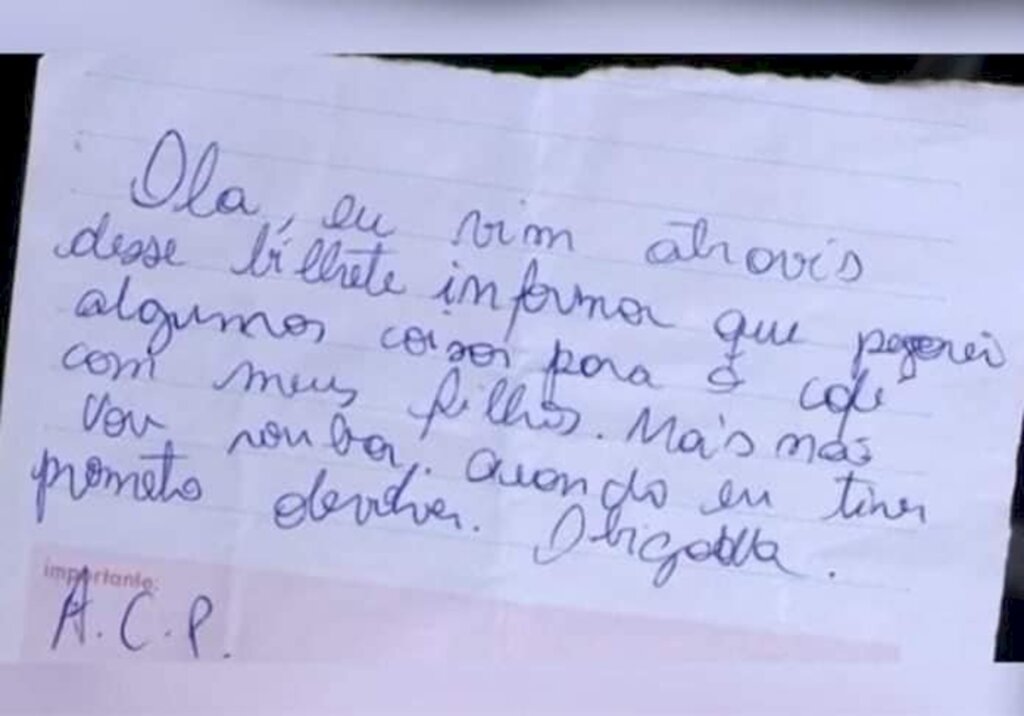 Ola, eu vim atravis
desse bilhete informar que pegarei
algumas coisas para o cafe
com meus filhos. Mais não
vou roubar, quando eu tiver
prometo devolver. Obigadda.
importante:
A.C.P.